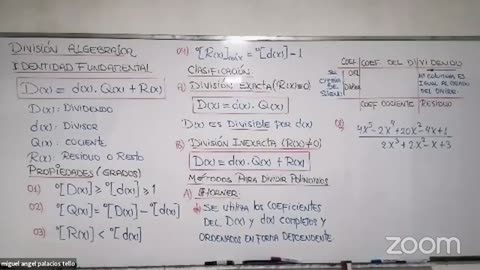 DIVISIÓN ALGEBRAICA
IDENTIDAD FUNDAMENTAL
D(x) = d(x). Q(x) + R(x)
D(x): DIVIDENDO
d(x): DIVISOR
Q(x): COCIENTE
R(x): RESIDUO O RESTO
PROPIEDADES (GRADOS)
01) °[D(x)] ≥ °[d(x)] ≥ 1
02) °[Q(x)] = °[D(x)] - °[d(x)]
03) °[R(x)] < °[d(x)]
04) °[R(x)]máx = °[d(x)] - 1
CLASIFICACIÓN:
A) DIVISIÓN EXACTA (R(x)=0)
D(x) = d(x). Q(x)
D(x) ES DIVISIBLE POR d(x)
B) DIVISIÓN INEXACTA (R(x)≠0)
D(x) = d(x). Q(x) + R(x)
MÉTODOS PARA DIVIDIR POLINOMIOS
A) HORNER:
SE UTILIZA LOS COEFICIENTES
DEL D(x) Y d(x) COMPLETOS Y
ORDENADOS EN FORMA DESCENDENTE
COEF. COEF. DEL DIVIDENDO
SE CAMBIA DE SIGNO
DEL DIVISOR
N° COLUMNAS ES
IGUAL AL GRADO
DEL DIVISOR
COEF COCIENTE RESIDUO
4x⁵-2x⁴+20x²-4x+1
2x³+2x²-x+3
miguel angel palacios tello
zoom